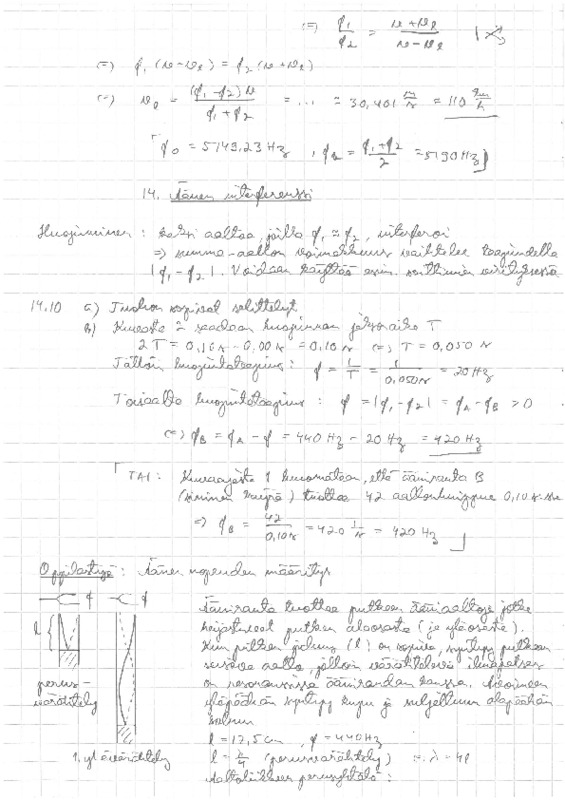 (=) f₁/f₂ = v+vₗ / v−vₗ
(=) f₁(v−vₗ) = f₂(v+vₗ)
(=) vₗ = (f₁−f₂)v / f₁+f₂ = ... ≈ 30,401 m/s ≈ 110 km/h
f₀ = 5149,23 Hz, = f₁+f₂ / 2 = 5190 Hz
14. Äänen interferenssi
Huojuminen: kaksi aaltoa, joilla f₁ ≈ f₂, interferoi
=) summa-aallon voimakkuus vaihtelee taajuudella
|f₁−f₂|. Voidaan käyttää esim. soittimien virityksessä
14.10 a) Tuohon sopivat selittelyt
b) Kuvasta 2 saadaan huojunnan jaksonaika T
2T = 0,10s − 0,00s = 0,10s (=) T = 0,050s
Tällöin huojuntataajuus: f = 1/T = 1/0,050s = 20 Hz
Toisaalta huojuntataajuus: f = |f₁−f₂| = f_A − f_B > 0
(=) f_B = f_A − f = 440 Hz − 20 Hz = 420 Hz
TAI: Kuvaajasta 1 huomataan, että äänirauta B
(sininen käyrä) tuottaa 42 aallonhuippua 0,10 s:ssa
=) f_B = 42/0,10s = 420 1/s = 420 Hz
Oppilastyö: Äänen nopeuden määritys
f f
l
Äänirauta tuottaa putkeen ääniaaltoja jotka
heijastuvat putken alaosasta (ja yläosasta).
Kun putken pituus (l) on sopiva, syntyy putkeen
seisova aalto, jolloin värähtelevä ilmapatsas
perus-
värähtely
on resonanssissa ääniraudan kanssa. Avoimeen
yläpäähän syntyy kupu ja suljettuun alapäähän
solmu
l = 17,5cm, f = 440Hz
1. ylävärähtely
l = λ/4 (perusvärähtely) λ = 4l
Aaltoliikkeen perusyhtälö: